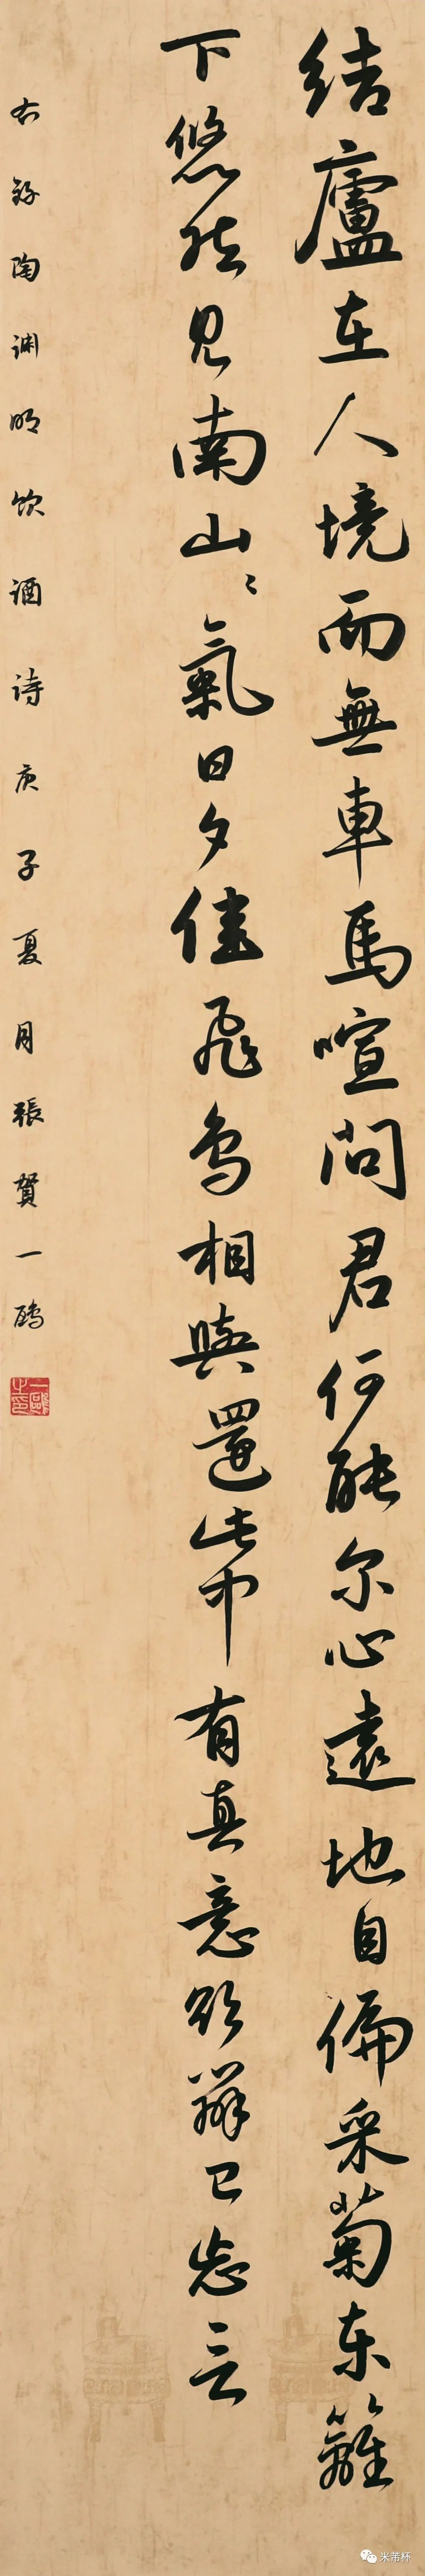 结廬在人境而無車馬喧問君何能尔心遠地自偏采菊东籬
下悠然见南山〻氣日夕佳飛鸟相與還此中有真意欲辨已忘言
右録陶渊明饮酒诗庚子夏月張贺一鸥
一鷗之印
米芾杯